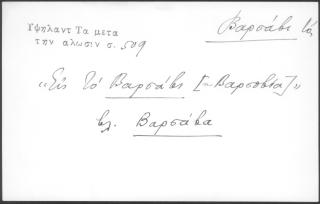 Υψηλαντ Τα μετα
την αλωσιν σ. 509
Βαρσάβι τό
«Εἰς τό Βαρσάβι [=Βαρσοβία]»
βλ. Βαρσάβα